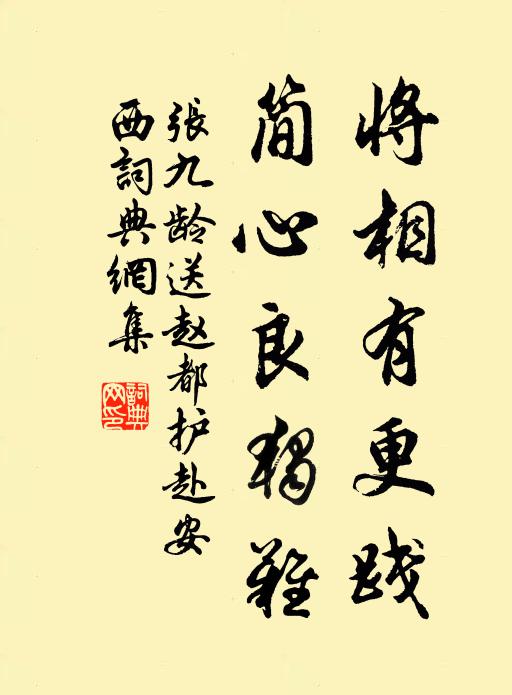 将相有更践
简心良独难
張九龄送赵都护赴安
西詞典網集
詞典
网印